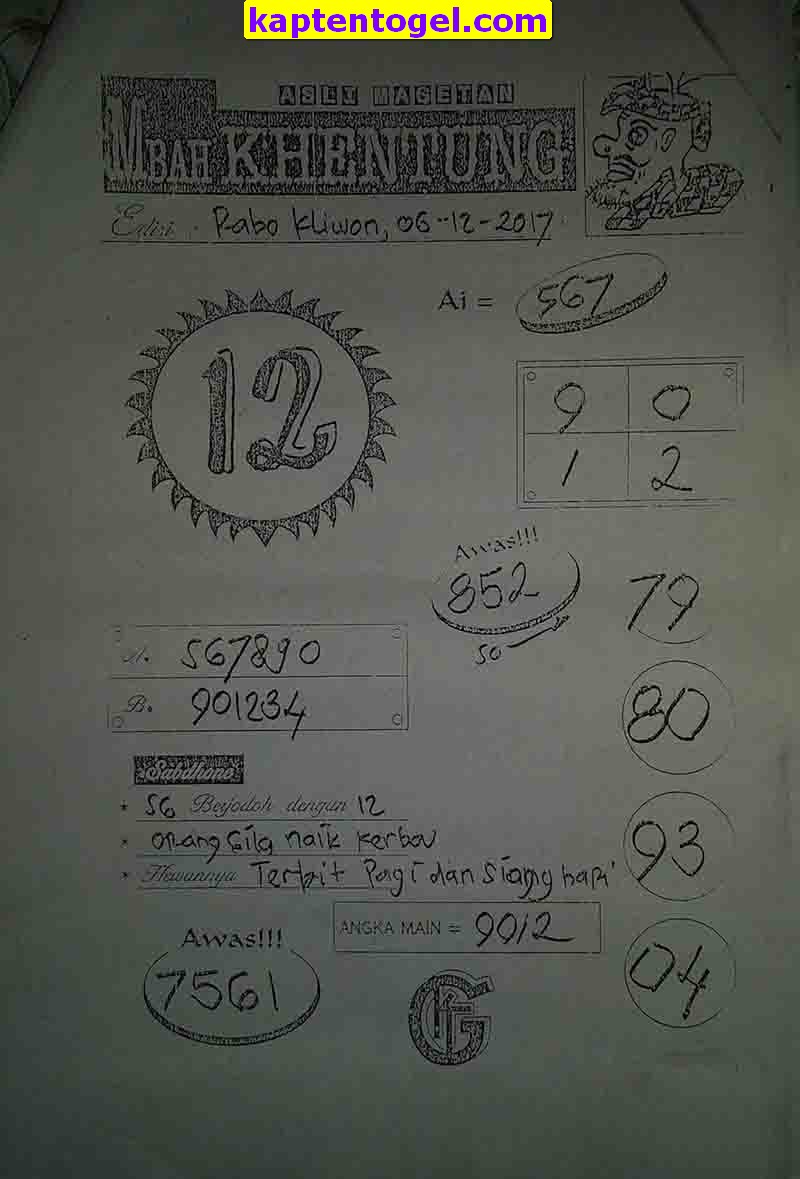 kaptentogel.com
ASLI MASETAN
MBAH KHENTUNG
Edisi : Rabo Kliwon, 06-12-2017
Ai = 567
12
9 0
1 2
Awas!!!
852
50
79
A. 567890
B. 901234
80
Sabdhono
* 56 Berjodoh dengan 12
* orang Gila naik kerbou
* Hewannya Terbit Pagi dan Siang hari
93
ANGKA MAIN = 9012
Awas!!!
7561
04